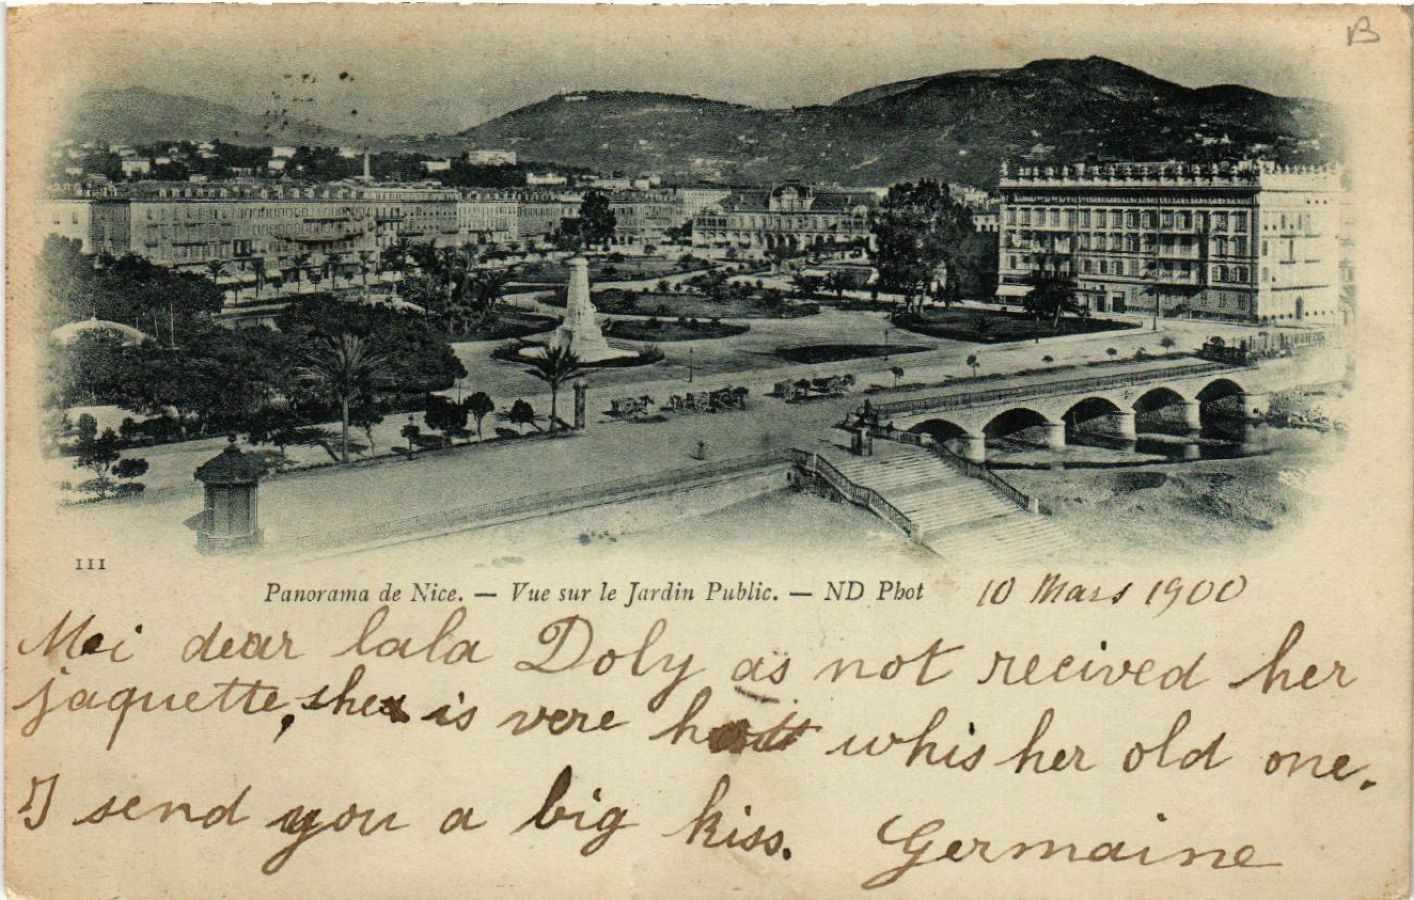 B
111
Panorama de Nice. — Vue sur le Jardin Public. — ND Phot 10 Mars 1900
Mei dear lala Doly as not recived her
jaquette, she is vere hott whis her old one.
I send you a big kiss. Germaine